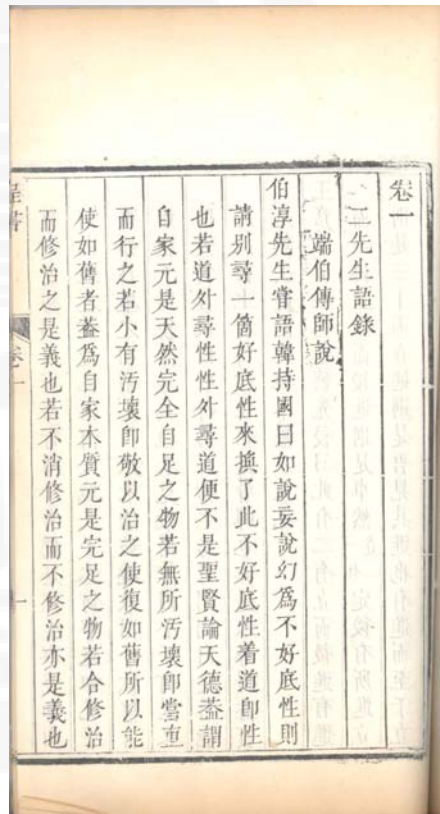 卷一
二先生語錄
端伯傳師說
伯淳先生嘗語韓持國曰如說妄說幻爲不好底性則
請別尋一箇好底性來換了此不好底性着道卽性
也若道外尋性性外尋道便不是聖賢論天德葢謂
自家元是天然完全自足之物若無所汚壞卽當直
而行之若小有汚壞卽敬以治之使復如舊所以能
使如舊者葢爲自家本質元是完足之物若合修治
而修治之是義也若不消修治而不修治亦是義也
程書
卷一
一